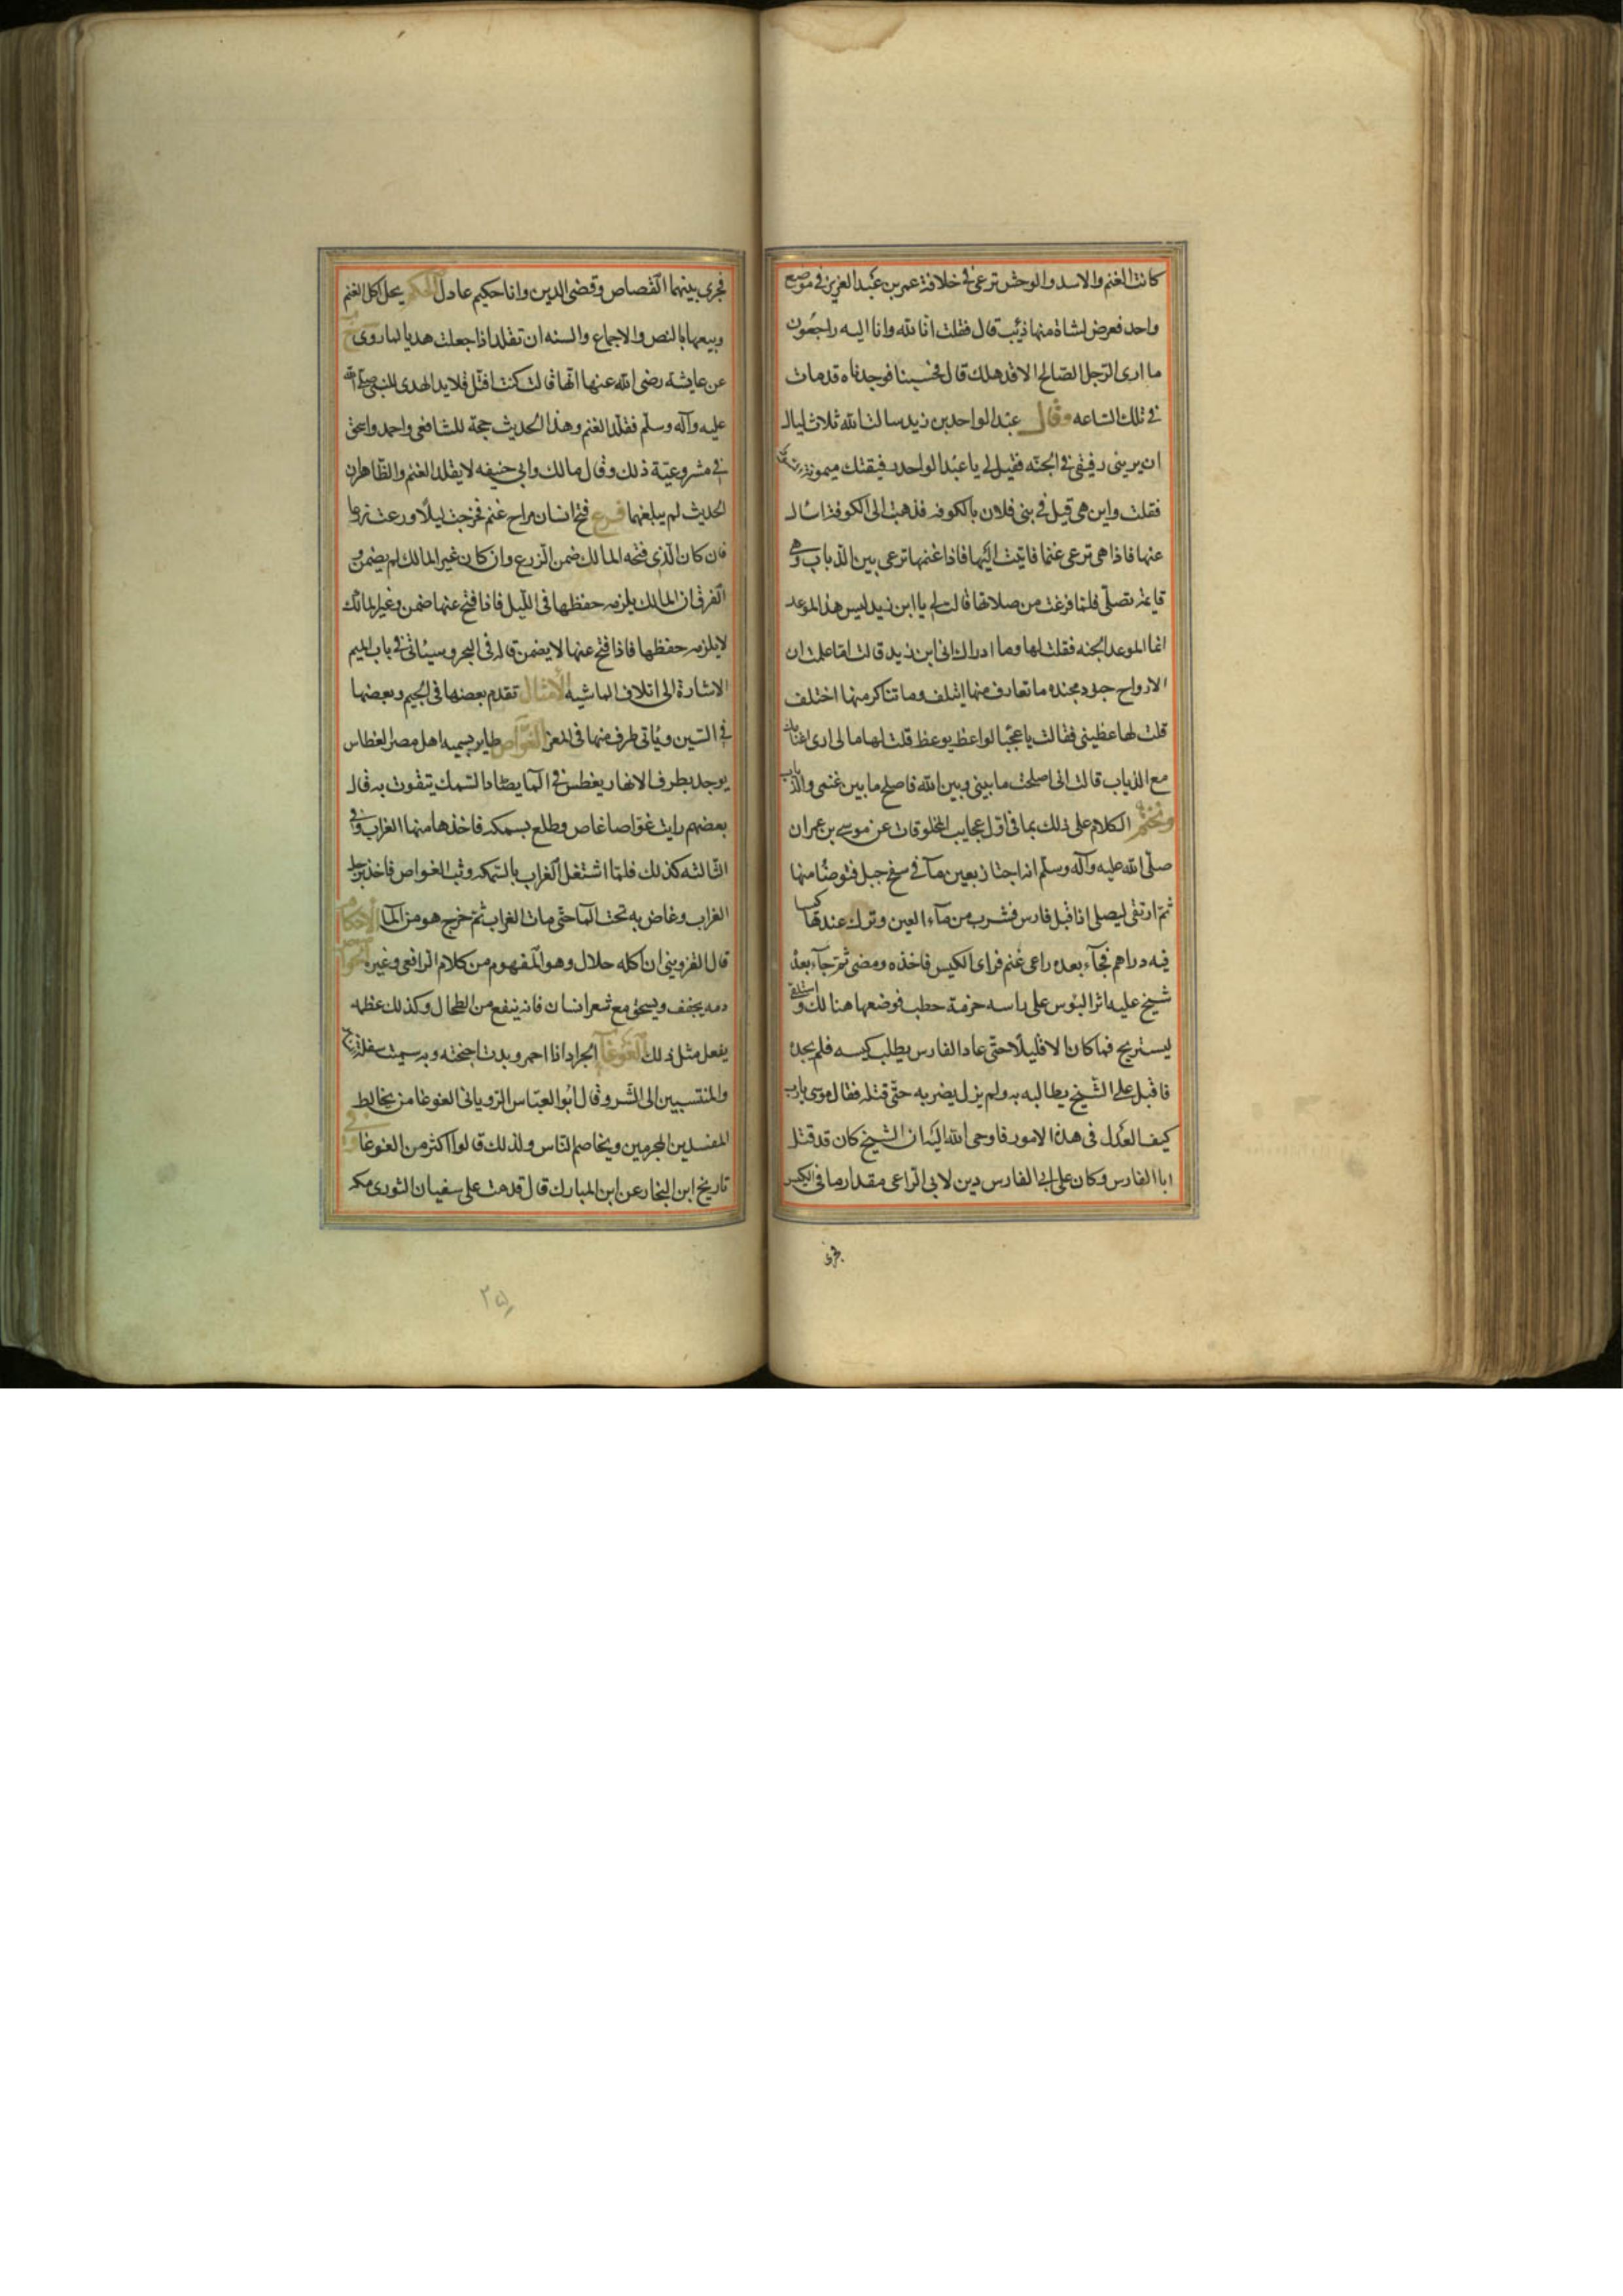 كانت الغنم والاسد والوحش ترعى في خلافة عمر بن عبد العزيز في موضع
واحد فعرض لشاة منها ذئب قال فقلت انا لله وانا اليه راجعون
ما ارى الرجل الصالح الا قد هلك قال فحسبنا فوجدناه قد مات
في تلك الساعه وقال عبد الواحد بن زيد سالت الله ثلاث ليال
ان يريني رفيقي في الجنه فقيل لي يا عبد الواحد رفيقتك ميمونة
فقلت واين هي قيل في بني فلان بالكوفه فذهبت الى الكوفة اسال
عنها فاذا هي ترعى غنما فاتيت اليها فاذا غنمها ترعى بين الذياب وهي
قايمة تصلي فلما فرغت من صلاتها قالت لي يا ابن زيد ليس هذا الموعد
انما الموعد الجنه فقلت لها وما ادراك اني ابن زيد قالت اما علمت ان
الارواح جنود مجنده ما تعارف منها ائتلف وما تناكر منها اختلف
قلت لها عظيني فقالت يا عجبا لواعظ يوعظ قلت لها مالي ارى اغنامك
مع الذياب قالت اني اصلحت ما بيني وبين الله فاصلح ما بين غنمي والذياب
ونختم الكلام على ذلك بما في اول عجايب المخلوقات عن موسى بن عمران
صلى الله عليه وآله وسلم انه اجتاز بعين مآ في سفح جبل فتوضا منها
ثم ارتقى ليصلي اذ اقبل فارس فشرب من مآء العين وترك عندها كيسا
فيه دراهم فجآء بعده راعى غنم فراى الكيس فاخذه ومضى ثم جآء بعده
شيخ عليه اثر البوس على راسه حزمة حطب فوضعها هنالك واستلقى
ليستريح فما كان الا قليلا حتى عاد الفارس يطلب كيسه فلم يجده
فاقبل على الشيخ يطالبه به ولم يزل يضربه حتى قتله فقال موسى يارب
كيف العدل في هذه الامور فاوحى الله اليه ان الشيخ كان قد قتل
ابا الفارس وكان على ابي الفارس دين لابي الراعى مقدار ما في الكيس
فجرى
فجرى بينهما القصاص وقضى الدين وانا حكيم عادل الحكم يحل اكل الغنم
وبيعها بالنص والاجماع والسنه ان تقلد اذا جعلت هديا لما روى
عن عايشه رضى الله عنها انها قالت كنت افتل قلايد الهدى للنبي صلى الله
عليه وآله وسلم فقلد الغنم وهذا الحديث حجة للشافعي واحمد واسحق
في مشروعية ذلك وقال مالك وابي حنيفه لا يقلد الغنم والظاهر ان
الحديث لم يبلغهما فرع فتح انسان مراح غنم فخرجت ليلا ورعت زرعا
فان كان الذي فتحه المالك ضمن الزرع وان كان غير المالك لم يضمن و
الفرق ان المالك يلزمه حفظها في الليل فاذا فتح عنها ضمن وغير المالك
لا يلزمه حفظها فاذا فتح عنها لا يضمن قاله في البحر وسيئاتي في باب الميم
الاشارة الى اتلاف الماشيه الامثال تقدم بعضها في الجيم وبعضها
في السين ويئاتي طرف منها في المعز الغواص طاير يسميه اهل مصر الغطاس
يوجد بطرف الانهار يغطس في المآ يصطاد السمك يتقوت به قال
بعضهم رايت غواصا غاص وطلع بسمكه فاخذها منها الغراب وفي
الثالثه كذلك فلما اشتغل الغراب بالسمكه وثب الغواص فاخذ برجل
الغراب وغاص به تحت المآ حتى مات الغراب ثم خرج هو من المآ الاحكام
قال القزويني ان اكله حلال وهو المفهوم من كلام الرافعي وغيره الخواص
دمه يجفف ويسحق مع شعر انسان فانه ينفع من الطحال وكذلك عظمه
يفعل مثل ذلك الغوغآ الجراد اذا احمر وبدت اجنحته وبه سميت سفلة الناس
والمنتسبين الى الشر وقال ابو العباس الروياني الغوغا من يخالط
المفسدين المجرمين ويخاصم الناس ولذلك قالوا اكثر من الغوغا وفي
تاريخ ابن النجار عن ابن المبارك قال قدمت على سفيان الثورى مكه